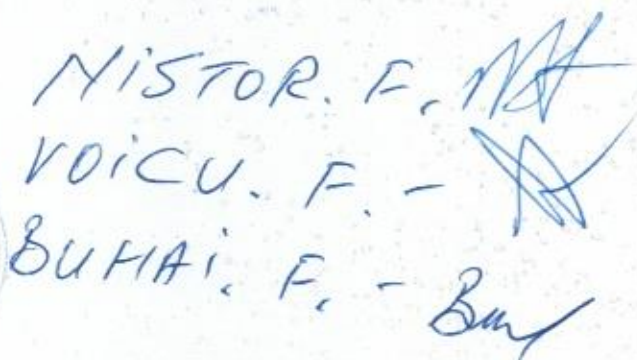 NiSTOR. F.
VOiCU. F. -
BUHAi. F. -